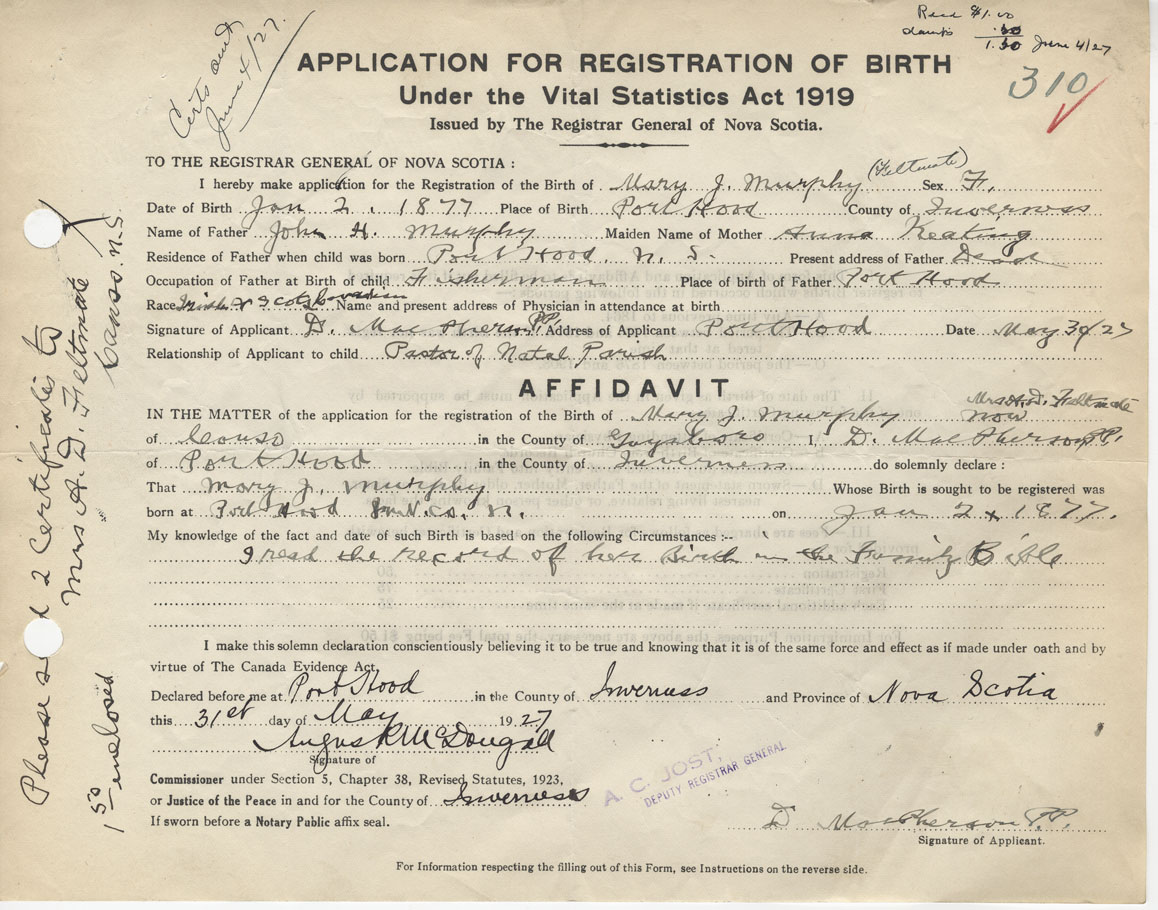 Certs sent
June 4/27.
Recd $1.00
stamps .50
1.50 June 4/27
310
APPLICATION FOR REGISTRATION OF BIRTH
Under the Vital Statistics Act 1919
Issued by The Registrar General of Nova Scotia.
TO THE REGISTRAR GENERAL OF NOVA SCOTIA :
I hereby make application for the Registration of the Birth of Mary J. Murphy (Feltmate) Sex F.
Date of Birth Jan 2, 1877 Place of Birth Port Hood County of Inverness
Name of Father John H. Murphy Maiden Name of Mother Anna Keating
Residence of Father when child was born Port Hood, N. S. Present address of Father Dead
Occupation of Father at Birth of child Fisherman Place of birth of Father Port Hood
Race Irish & Scotch Canadian Name and present address of Physician in attendance at birth
Signature of Applicant D. MacPherson P.P. Address of Applicant Port Hood Date May 30/27
Relationship of Applicant to child Pastor of Natal Parish
AFFIDAVIT
IN THE MATTER of the application for the registration of the Birth of Mary J. Murphy now Mrs A. D. Feltmate
of Canso in the County of Guysboro I, D. MacPherson P.P.
of Port Hood in the County of Inverness do solemnly declare :
That Mary J. Murphy Whose Birth is sought to be registered was
born at Port Hood Inv. Co. N. on Jan 2, 1877.
My knowledge of the fact and date of such Birth is based on the following Circumstances :--
I read the record of her Birth in the Family Bible
I make this solemn declaration conscientiously believing it to be true and knowing that it is of the same force and effect as if made under oath and by
virtue of The Canada Evidence Act,
Declared before me at Port Hood in the County of Inverness and Province of Nova Scotia
this 31st day of May 1927
Angus R McDougall
Signature of
Commissioner under Section 5, Chapter 38, Revised Statutes, 1923,
or Justice of the Peace in and for the County of Inverness
If sworn before a Notary Public affix seal.
A. C. JOST,
DEPUTY REGISTRAR GENERAL
D MacPherson P.P.
Signature of Applicant.
For Information respecting the filling out of this Form, see Instructions on the reverse side.
Please 2 Certificates to
Mrs A. D. Feltmate
Canso N.S
1 50 enclosed